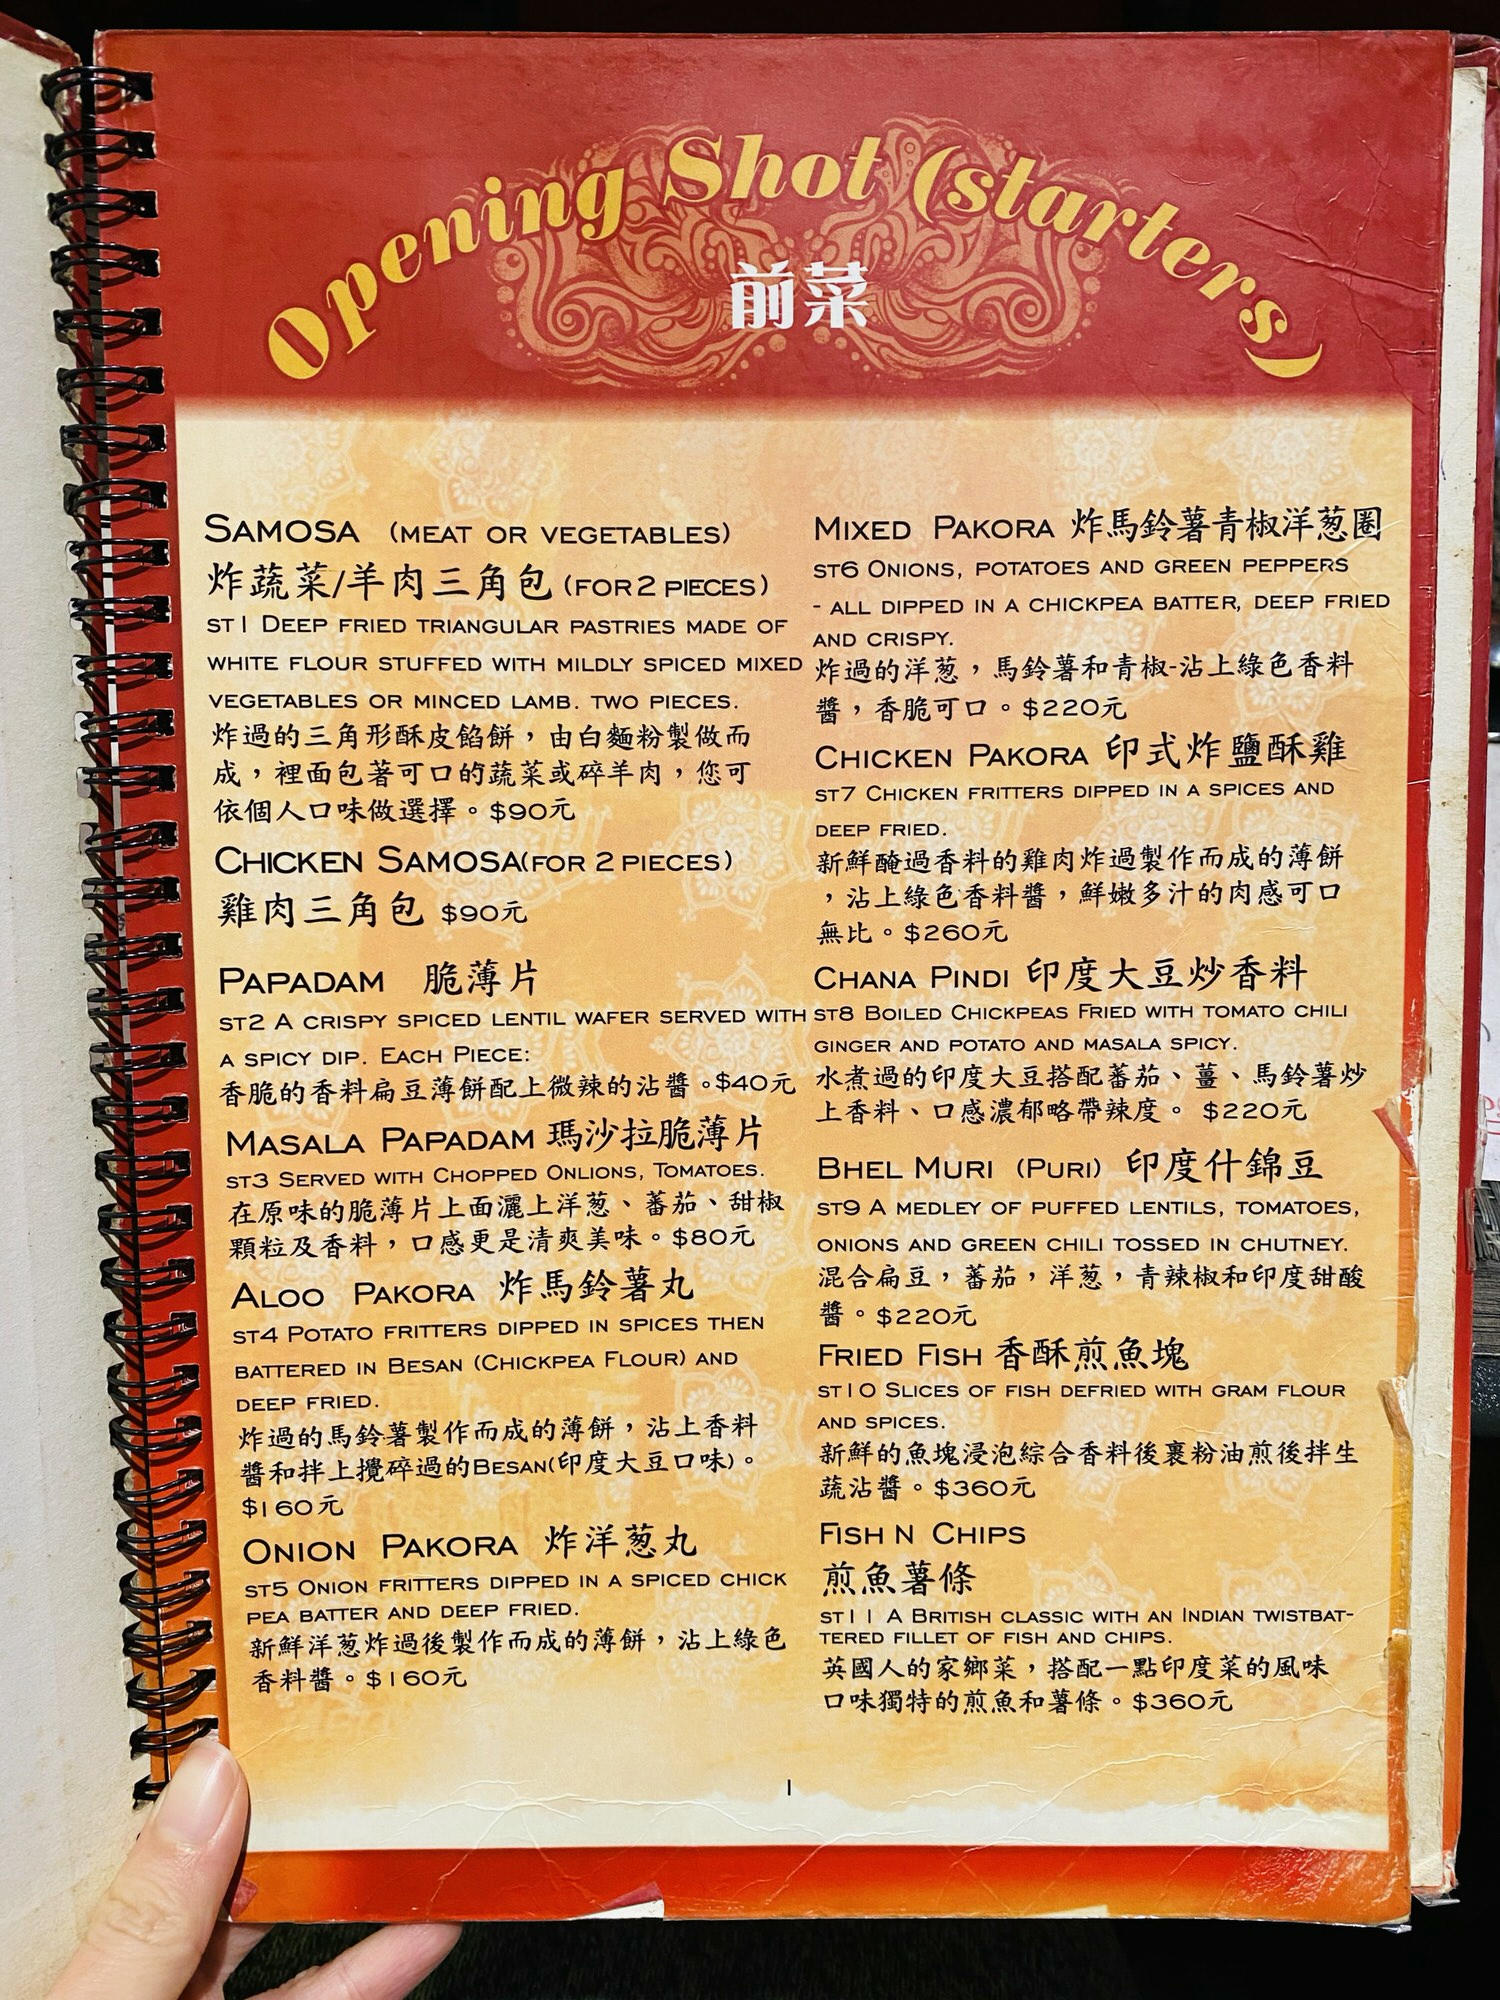 Opening Shot (starters)
前菜
SAMOSA (MEAT OR VEGETABLES)
炸蔬菜/羊肉三角包 (FOR 2 PIECES)
ST1 DEEP FRIED TRIANGULAR PASTRIES MADE OF
WHITE FLOUR STUFFED WITH MILDLY SPICED MIXED
VEGETABLES OR MINCED LAMB. TWO PIECES.
炸過的三角形酥皮餡餅，由白麵粉製做而
成，裡面包著可口的蔬菜或碎羊肉，您可
依個人口味做選擇。$90元
CHICKEN SAMOSA(FOR 2 PIECES)
雞肉三角包 $90元
PAPADAM 脆薄片
ST2 A CRISPY SPICED LENTIL WAFER SERVED WITH
A SPICY DIP. EACH PIECE:
香脆的香料扁豆薄餅配上微辣的沾醬。$40元
MASALA PAPADAM 瑪沙拉脆薄片
ST3 SERVED WITH CHOPPED ONLIONS, TOMATOES.
在原味的脆薄片上面灑上洋葱、蕃茄、甜椒
顆粒及香料，口感更是清爽美味。$80元
ALOO PAKORA 炸馬鈴薯丸
ST4 POTATO FRITTERS DIPPED IN SPICES THEN
BATTERED IN BESAN (CHICKPEA FLOUR) AND
DEEP FRIED.
炸過的馬鈴薯製作而成的薄餅，沾上香料
醬和拌上攪碎過的BESAN(印度大豆口味)。
$160元
ONION PAKORA 炸洋葱丸
ST5 ONION FRITTERS DIPPED IN A SPICED CHICK
PEA BATTER AND DEEP FRIED.
新鮮洋葱炸過後製作而成的薄餅，沾上綠色
香料醬。$160元
MIXED PAKORA 炸馬鈴薯青椒洋葱圈
ST6 ONIONS, POTATOES AND GREEN PEPPERS
- ALL DIPPED IN A CHICKPEA BATTER, DEEP FRIED
AND CRISPY.
炸過的洋葱，馬鈴薯和青椒-沾上綠色香料
醬，香脆可口。$220元
CHICKEN PAKORA 印式炸鹽酥雞
ST7 CHICKEN FRITTERS DIPPED IN A SPICES AND
DEEP FRIED.
新鮮醃過香料的雞肉炸過製作而成的薄餅
，沾上綠色香料醬，鮮嫩多汁的肉感可口
無比。$260元
CHANA PINDI 印度大豆炒香料
ST8 BOILED CHICKPEAS FRIED WITH TOMATO CHILI
GINGER AND POTATO AND MASALA SPICY.
水煮過的印度大豆搭配蕃茄、薑、馬鈴薯炒
上香料、口感濃郁略帶辣度。 $220元
BHEL MURI (PURI) 印度什錦豆
ST9 A MEDLEY OF PUFFED LENTILS, TOMATOES,
ONIONS AND GREEN CHILI TOSSED IN CHUTNEY.
混合扁豆，蕃茄，洋葱，青辣椒和印度甜酸
醬。$220元
FRIED FISH 香酥煎魚塊
ST10 SLICES OF FISH DEFRIED WITH GRAM FLOUR
AND SPICES.
新鮮的魚塊浸泡綜合香料後裹粉油煎後拌生
蔬沾醬。$360元
FISH N CHIPS
煎魚薯條
ST11 A BRITISH CLASSIC WITH AN INDIAN TWISTBAT-
TERED FILLET OF FISH AND CHIPS.
英國人的家鄉菜，搭配一點印度菜的風味
口味獨特的煎魚和薯條。$360元
1